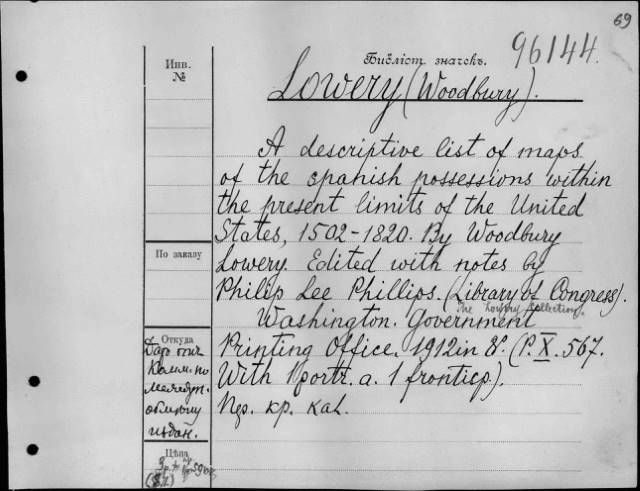 69
96144.
Инв.
№
Библіот. значекъ.
Lowery (Woodbury).
A descriptive list of maps
of the spanish possessions within
the present limits of the United
States, 1502-1820. By Woodbury
Lowery. Edited with notes by
Philip Lee Phillips. (Library of Congress).
The Lowery Collection.
Washington. Government
Printing Office. 1912 in 8º. (P. X. 567.
With 1 portr. a. 1 frontisp.).
По заказу
Откуда
Даръ отъ
Комм. по
Междун.
обмѣну
издан.
Цѣна